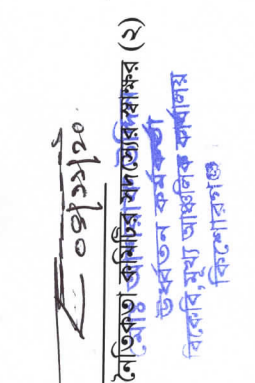 ০৪/১১/২০
নৈতিকতা কমিটির সদস্যের স্বাক্ষর (২)
মোঃ
উর্ধ্বতন কর্মকর্তা
বিকেবি, মুখ্য আঞ্চলিক কার্যালয়
কিশোরগঞ্জ